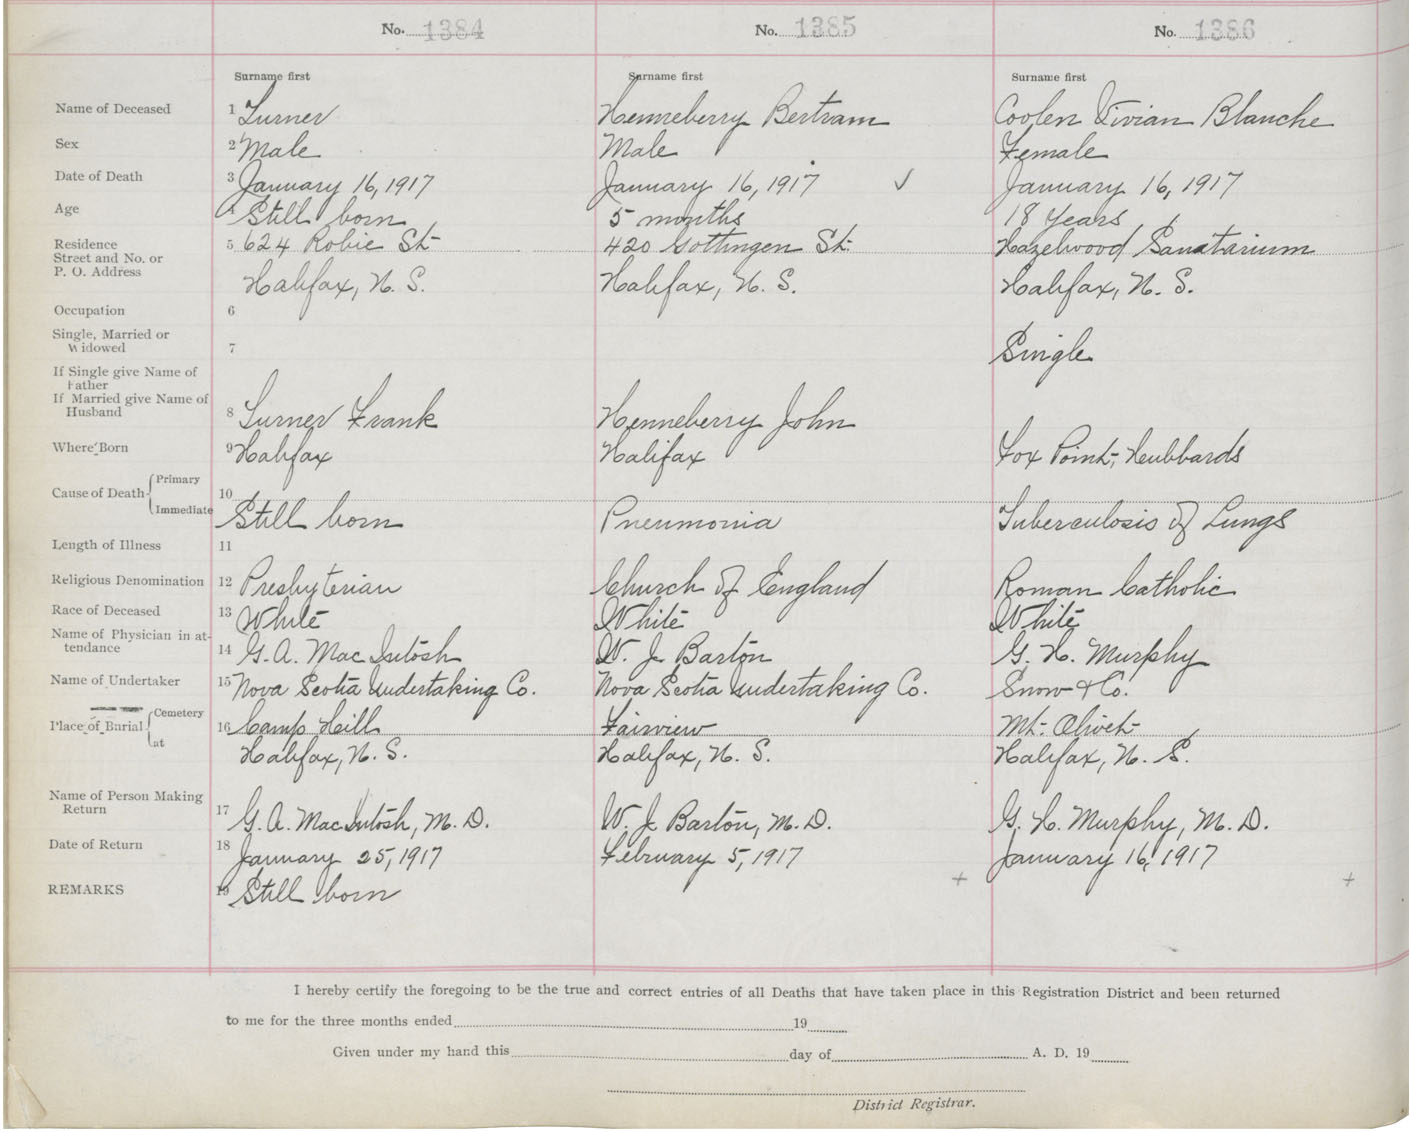 No. 1384 No. 1385 No. 1386
Surname first Surname first Surname first
Name of Deceased 1 Turner Henneberry Bertram Coolen Vivian Blanche
Sex 2 Male Male Female
Date of Death 3 January 16, 1917 January 16, 1917 ✓ January 16, 1917
Age Still born 5 months 18 Years
Residence 5 624 Robie St. 420 Gottingen St. Hazelwood Sanatarium
Street and No. or
P. O. Address Halifax, N. S. Halifax, N. S. Halifax, N. S.
Occupation 6
Single, Married or
Widowed 7 Single
If Single give Name of
Father
If Married give Name of
Husband 8 Turner Frank Henneberry John
Where Born 9 Halifax Halifax Fox Point, Hubbards
Cause of Death Primary 10
Immediate Still born Pneumonia Tuberculosis of Lungs
Length of Illness 11
Religious Denomination 12 Presbyterian Church of England Roman Catholic
Race of Deceased 13 White White White
Name of Physician in at-
tendance 14 G. A. MacIntosh W. J. Barton G. H. Murphy
Name of Undertaker 15 Nova Scotia Undertaking Co. Nova Scotia Undertaking Co. Snow & Co.
Place of Burial Cemetery 16 Camp Hill Fairview Mt. Olivet
at Halifax, N. S. Halifax, N. S. Halifax, N. S.
Name of Person Making
Return 17 G. A. MacIntosh, M. D. W. J. Barton, M. D. G. H. Murphy, M. D.
Date of Return 18 January 25, 1917 February 5, 1917 January 16, 1917
REMARKS 19 Still born + +
I hereby certify the foregoing to be the true and correct entries of all Deaths that have taken place in this Registration District and been returned
to me for the three months ended 19
Given under my hand this day of A. D. 19
District Registrar.